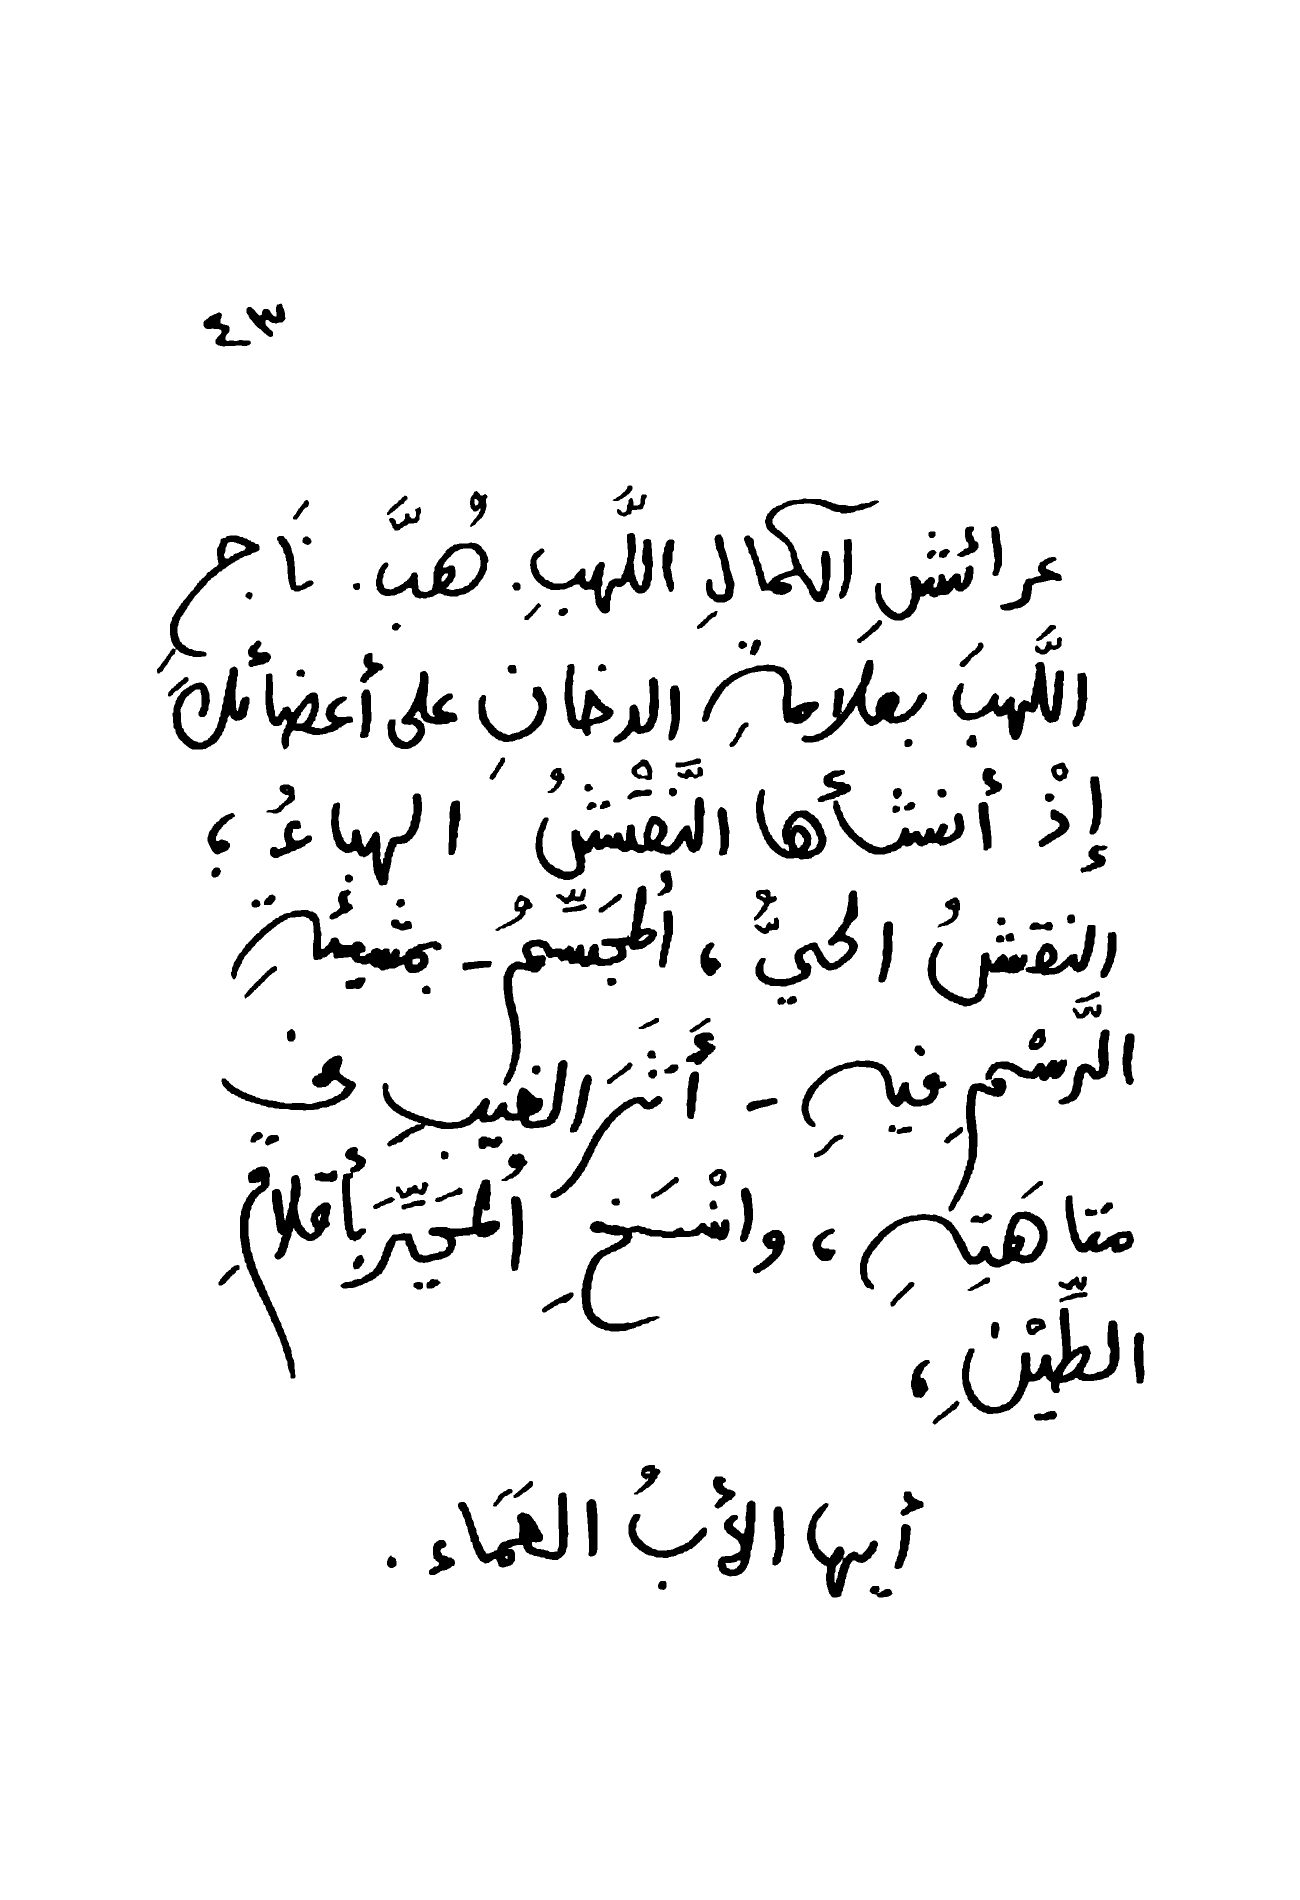 ٤٣
عرائشِ الكمالِ اللَّهبِ. هُبَّ. نَاجِ
اللَّهبَ بعلامةِ الدخانِ على أعضائكَ
إذْ أنشأها النَّقْشُ الهباءُ؛
النقشُ الحيُّ، اُلمجَسَّمُ - بمشيئةِ
الرَّسْمِ فيهِ - أَثَرَ الغيبِ في
متاهَتِهِ، وانْسَخِ اُلمحَيَّرَ بأقلامِ
الطِّيْنِ،
أيها الأبُ العَمَاء.